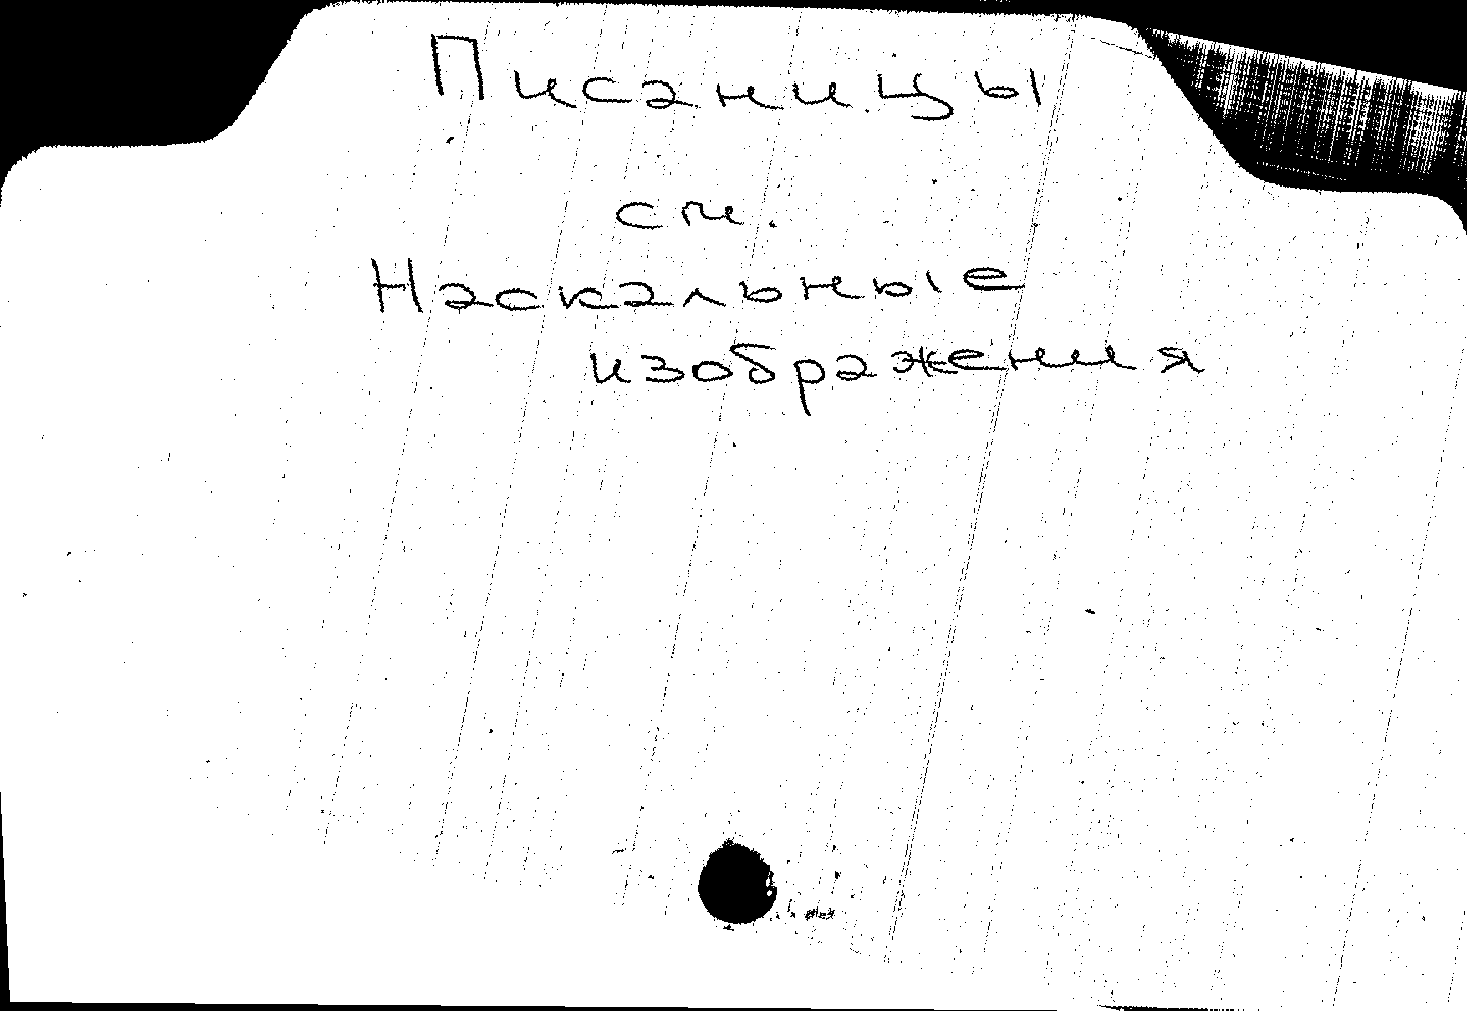 Писаницы
см.
Наскальные
изображения